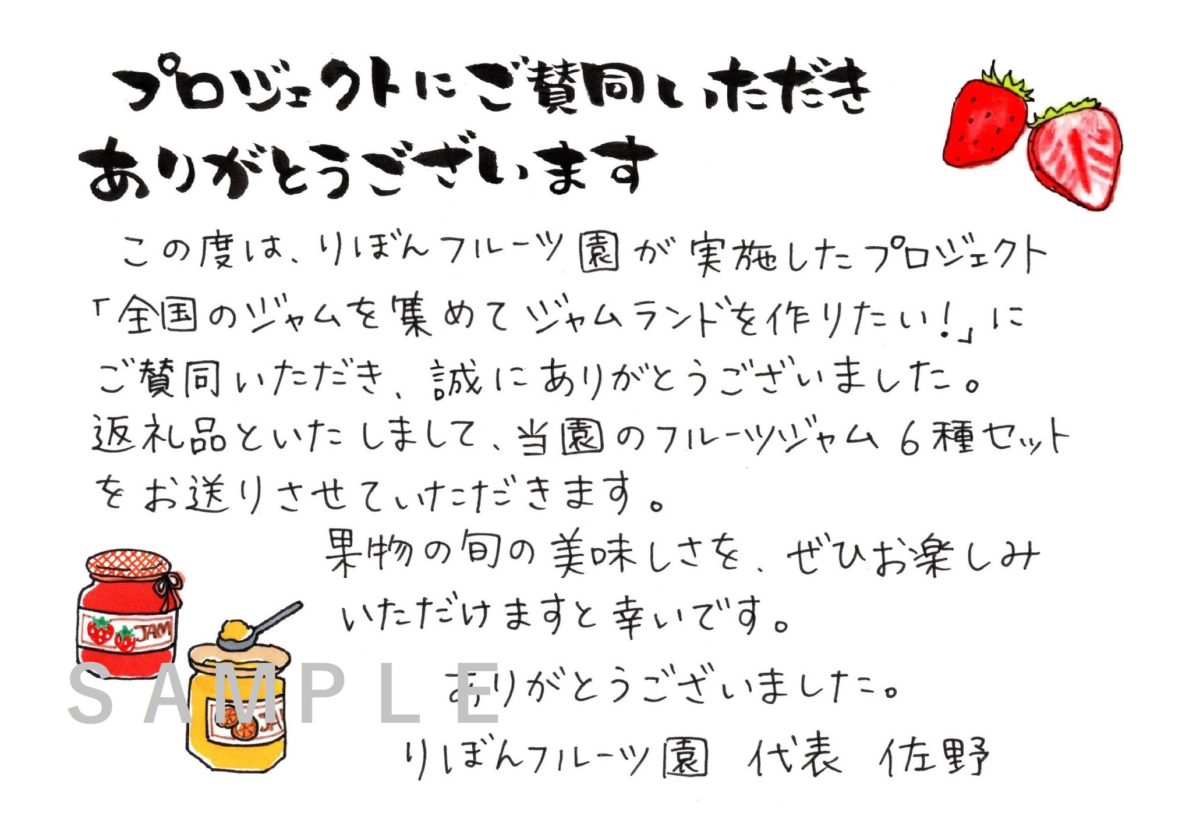 プロジェクトにご賛同いただき
ありがとうございます
この度は、りぼんフルーツ園が実施したプロジェクト
「全国のジャムを集めてジャムランドを作りたい!」に
ご賛同いただき、誠にありがとうございました。
返礼品といたしまして、当園のフルーツジャム6種セット
をお送りさせていただきます。
果物の旬の美味しさを、ぜひお楽しみ
いただけますと幸いです。
JAM
SAMPLE
ありがとうございました。
JA
りぼんフルーツ園 代表 佐野